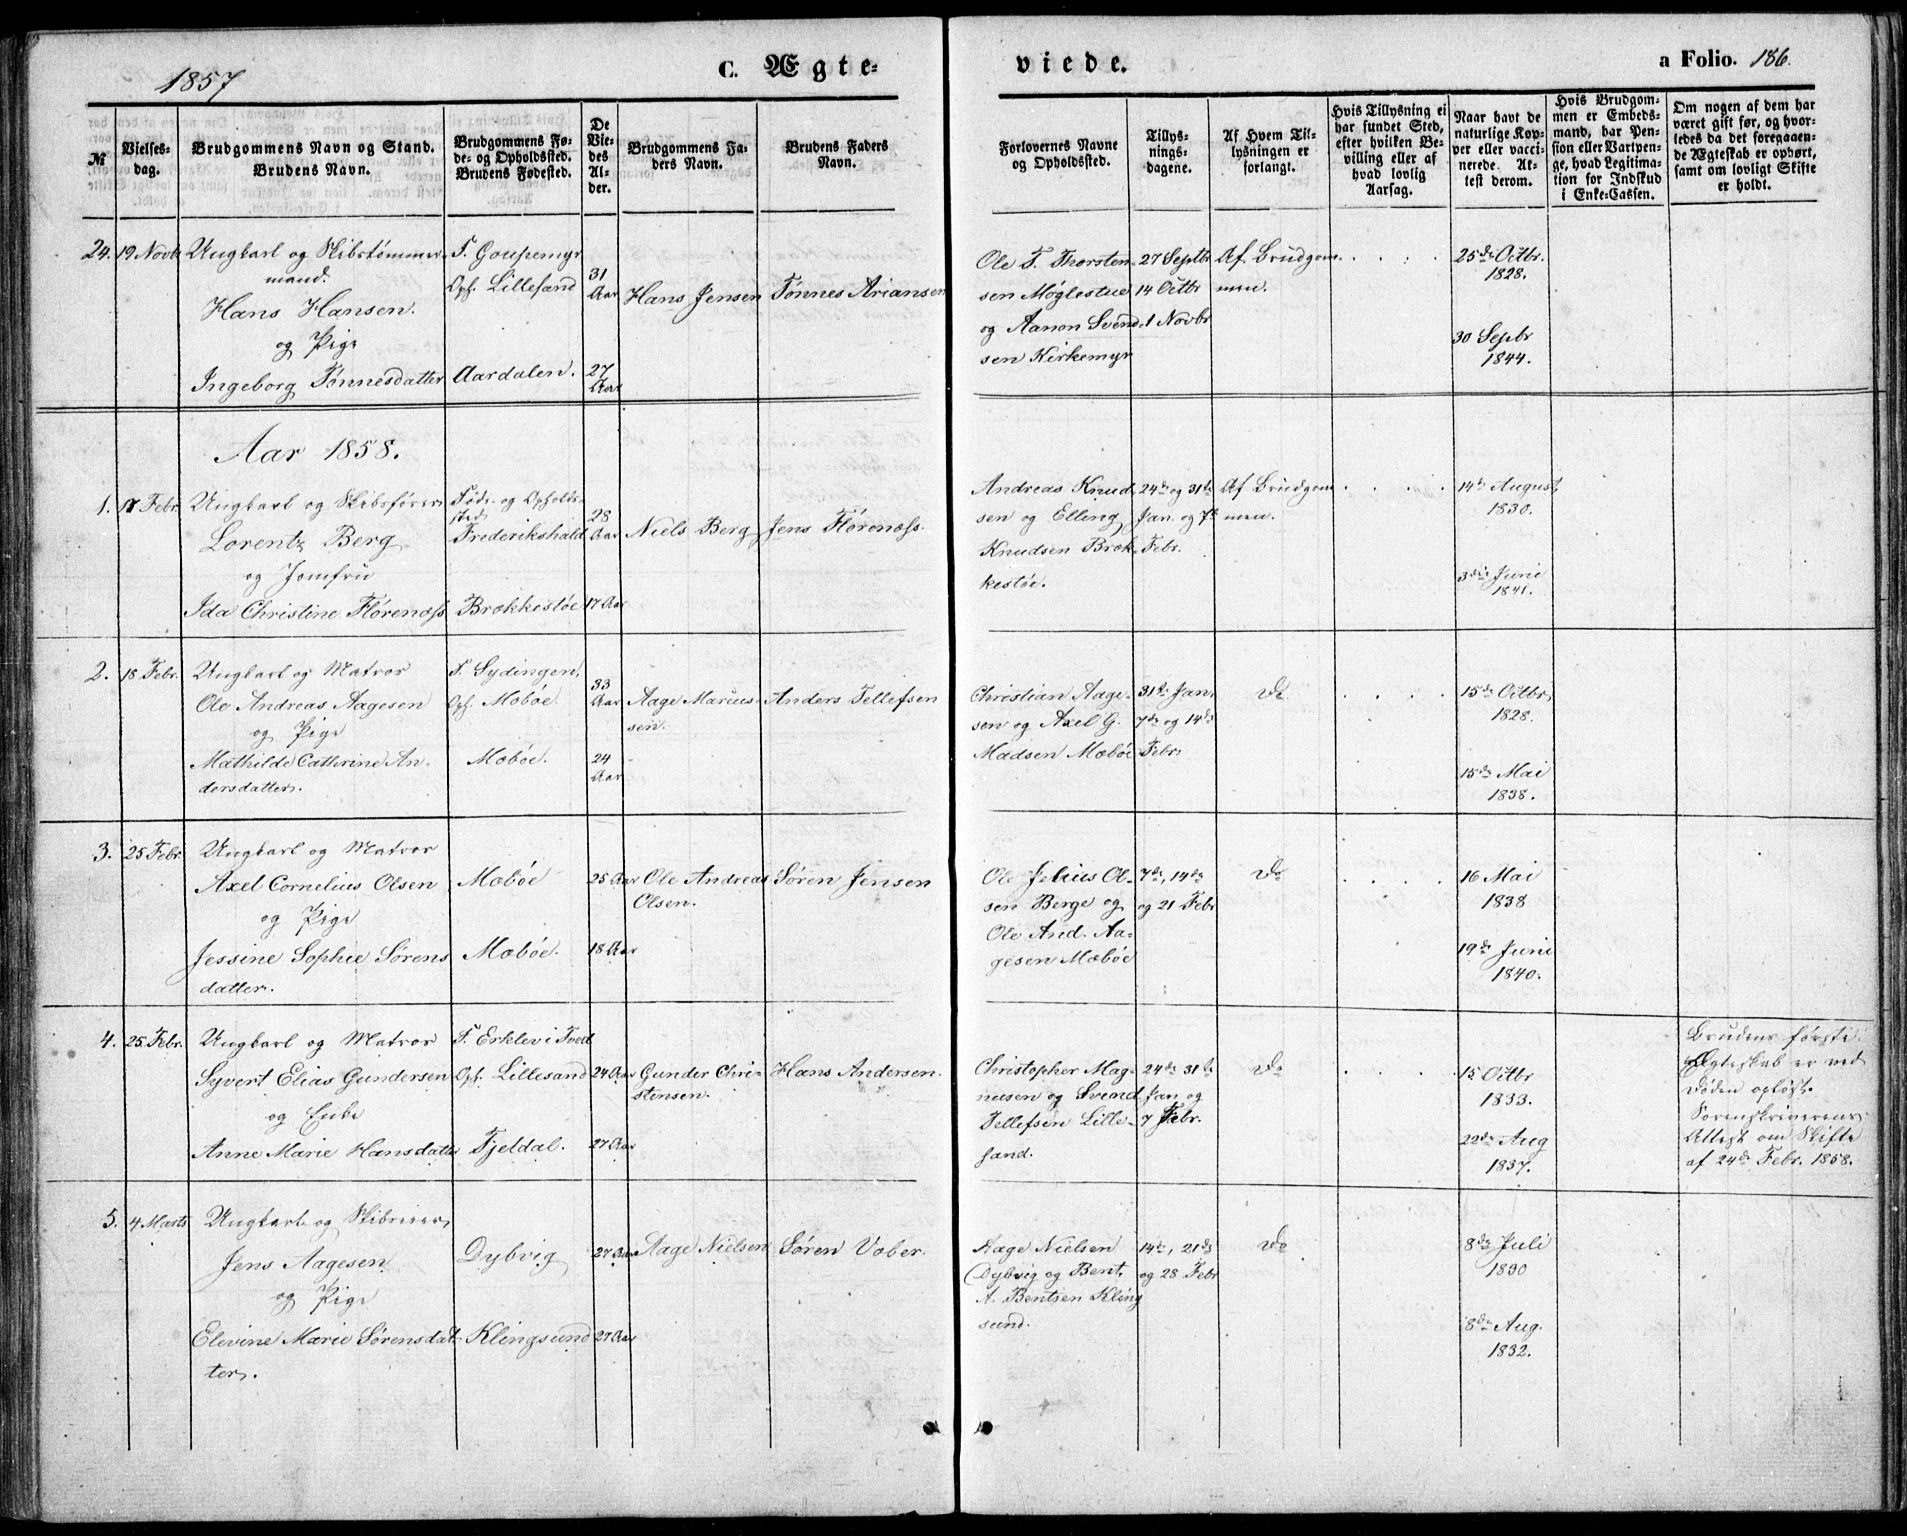 1857
C. Ægte-
viede.
a Folio. 186.
№
Vielses-
dag.
Brudgommens Navn og Stand.
Brudens Navn.
Brudgommens Fø-
de- og Opholdssted.
Brudens Fødested.
De
Vie-
des
Al-
der.
Brudgommens Fa-
ders Navn.
Brudens Faders
Navn.
Forlovernes Navne
og Opholdssted.
Tillys-
nings-
dagene.
Af Hvem Til-
lysningen er
forlangt.
Hvis Tillysning ei
har fundet Sted,
efter hvilken Be-
villing eller af
hvad lovlig
Aarsag.
Naar havt de
naturlige Kop-
per eller vacci-
nerede. At-
test derom.
Hvis Brudgom-
men er Embeds-
mand, har Pen-
sion eller Vartpen-
ge, hvad Legitima-
tion for Indskud
i Enke-Cassen.
Om nogen af dem har
været gift før, og hvor-
ledes da det foregaaen-
de Ægteskab er ophørt,
samt om lovligt Skifte
er holdt.
24. 19 Novb
Ungkarl og Skibstømmer-
mand.
Hans Hansen.
og Pige
Ingeborg Tønnesdatter
F. Goupemyr
Oph. Lillesand
Aardalen.
31
Aar
27
Aar
Hans Jensen
Tønnes Ariansen
Ole T. Thorsten-
sen Møglestue
og Aanon Svend-
sen Kirkemyr
27 Septbr
14 Octbr
1 Novbr
Af Brudgom-
men.
25de Octbr.
1828.
30 Sepbr
1844.
Aar 1858.
1. 18 Febr.
Ungkarl og Skibsfører
Lorentz Berg
og Jomfru
Ida Christine Flørenæss
Føde- og Opholds-
sted
Frederikshald
Brækkestøe
28
Aar
17 Aar
Niels Berg
Jens Flørenæss.
Andreas Knud-
sen og Elling
Knudsen Bræk-
kestøe.
24de og 31te
Jan. og 7de
Febr.
Af Brudgom-
men.
14de August
1830.
3die Juni
1841.
2. 18 Febr.
Ungkarl og Matros
Ole Andreas Aagesen
og Pige
Mathilde Cathrine An-
dersdatter.
F. Sydingen,
Oph. Mæbøe.
Mæbøe.
33
Aar
24
Aar
Aage Marcus-
sen.
Anders Tellefsen
Christian Aage-
sen og Axel G.
Madsen Mæbøe
31te Jan.
7de og 14de
Febr.
Do
15de Octbr,
1828.
15de Mai
1838.
3. 25 Febr.
Ungkarl og Matros
Axel Cornelius Olsen
og Pige
Jessine Sophie Sørens
datter.
Mæbøe
Mæbøe.
25 Aar
18 Aar
Ole Andreas
Olsen.
Søren Jensen
Ole Jelius Ol-
sen Berge og
Ole And. Aa-
gesen Mæbøe
7de, 14de
og 21 Febr
Do
16 Mai
1838
19de Juni
1840.
4. 25 Febr.
Ungkarl og Matros
Syvert Elias Gundersen
og Enke
Anne Marie Hansdatter
F. Erklev i Tved
Oph. Lillesand
Fjeldal.
24 Aar
27 Aar
Gunder Chri-
stensen.
Hans Andersen.
Christopher Mag-
nusen og Svend
Tellefsen Lille-
sand.
24de 31te
Jan og
7 Febr.
Do
15 Octbr
1833.
22de Aug
1837.
Brudens første
Ægteskab er ved
Døden opløst.
Sorenskriverens
Attest om Skifte
af 24de Febr. 1858.
5. 4 Marts
Ungkarl og Skibsfører
Jens Aagesen
og Pige
Elevine Marie Sørensdat-
ter.
Dybvig
Klingsund
27 Aar
27 Aar
Aage Nielsen
Søren Vober.
Aage Nielsen
Dybvig og Bent
A. Bentsen Kling
sund.
14de, 21de
og 28 Febr
Do
8de Juli
1830
8de Aug.
1832.